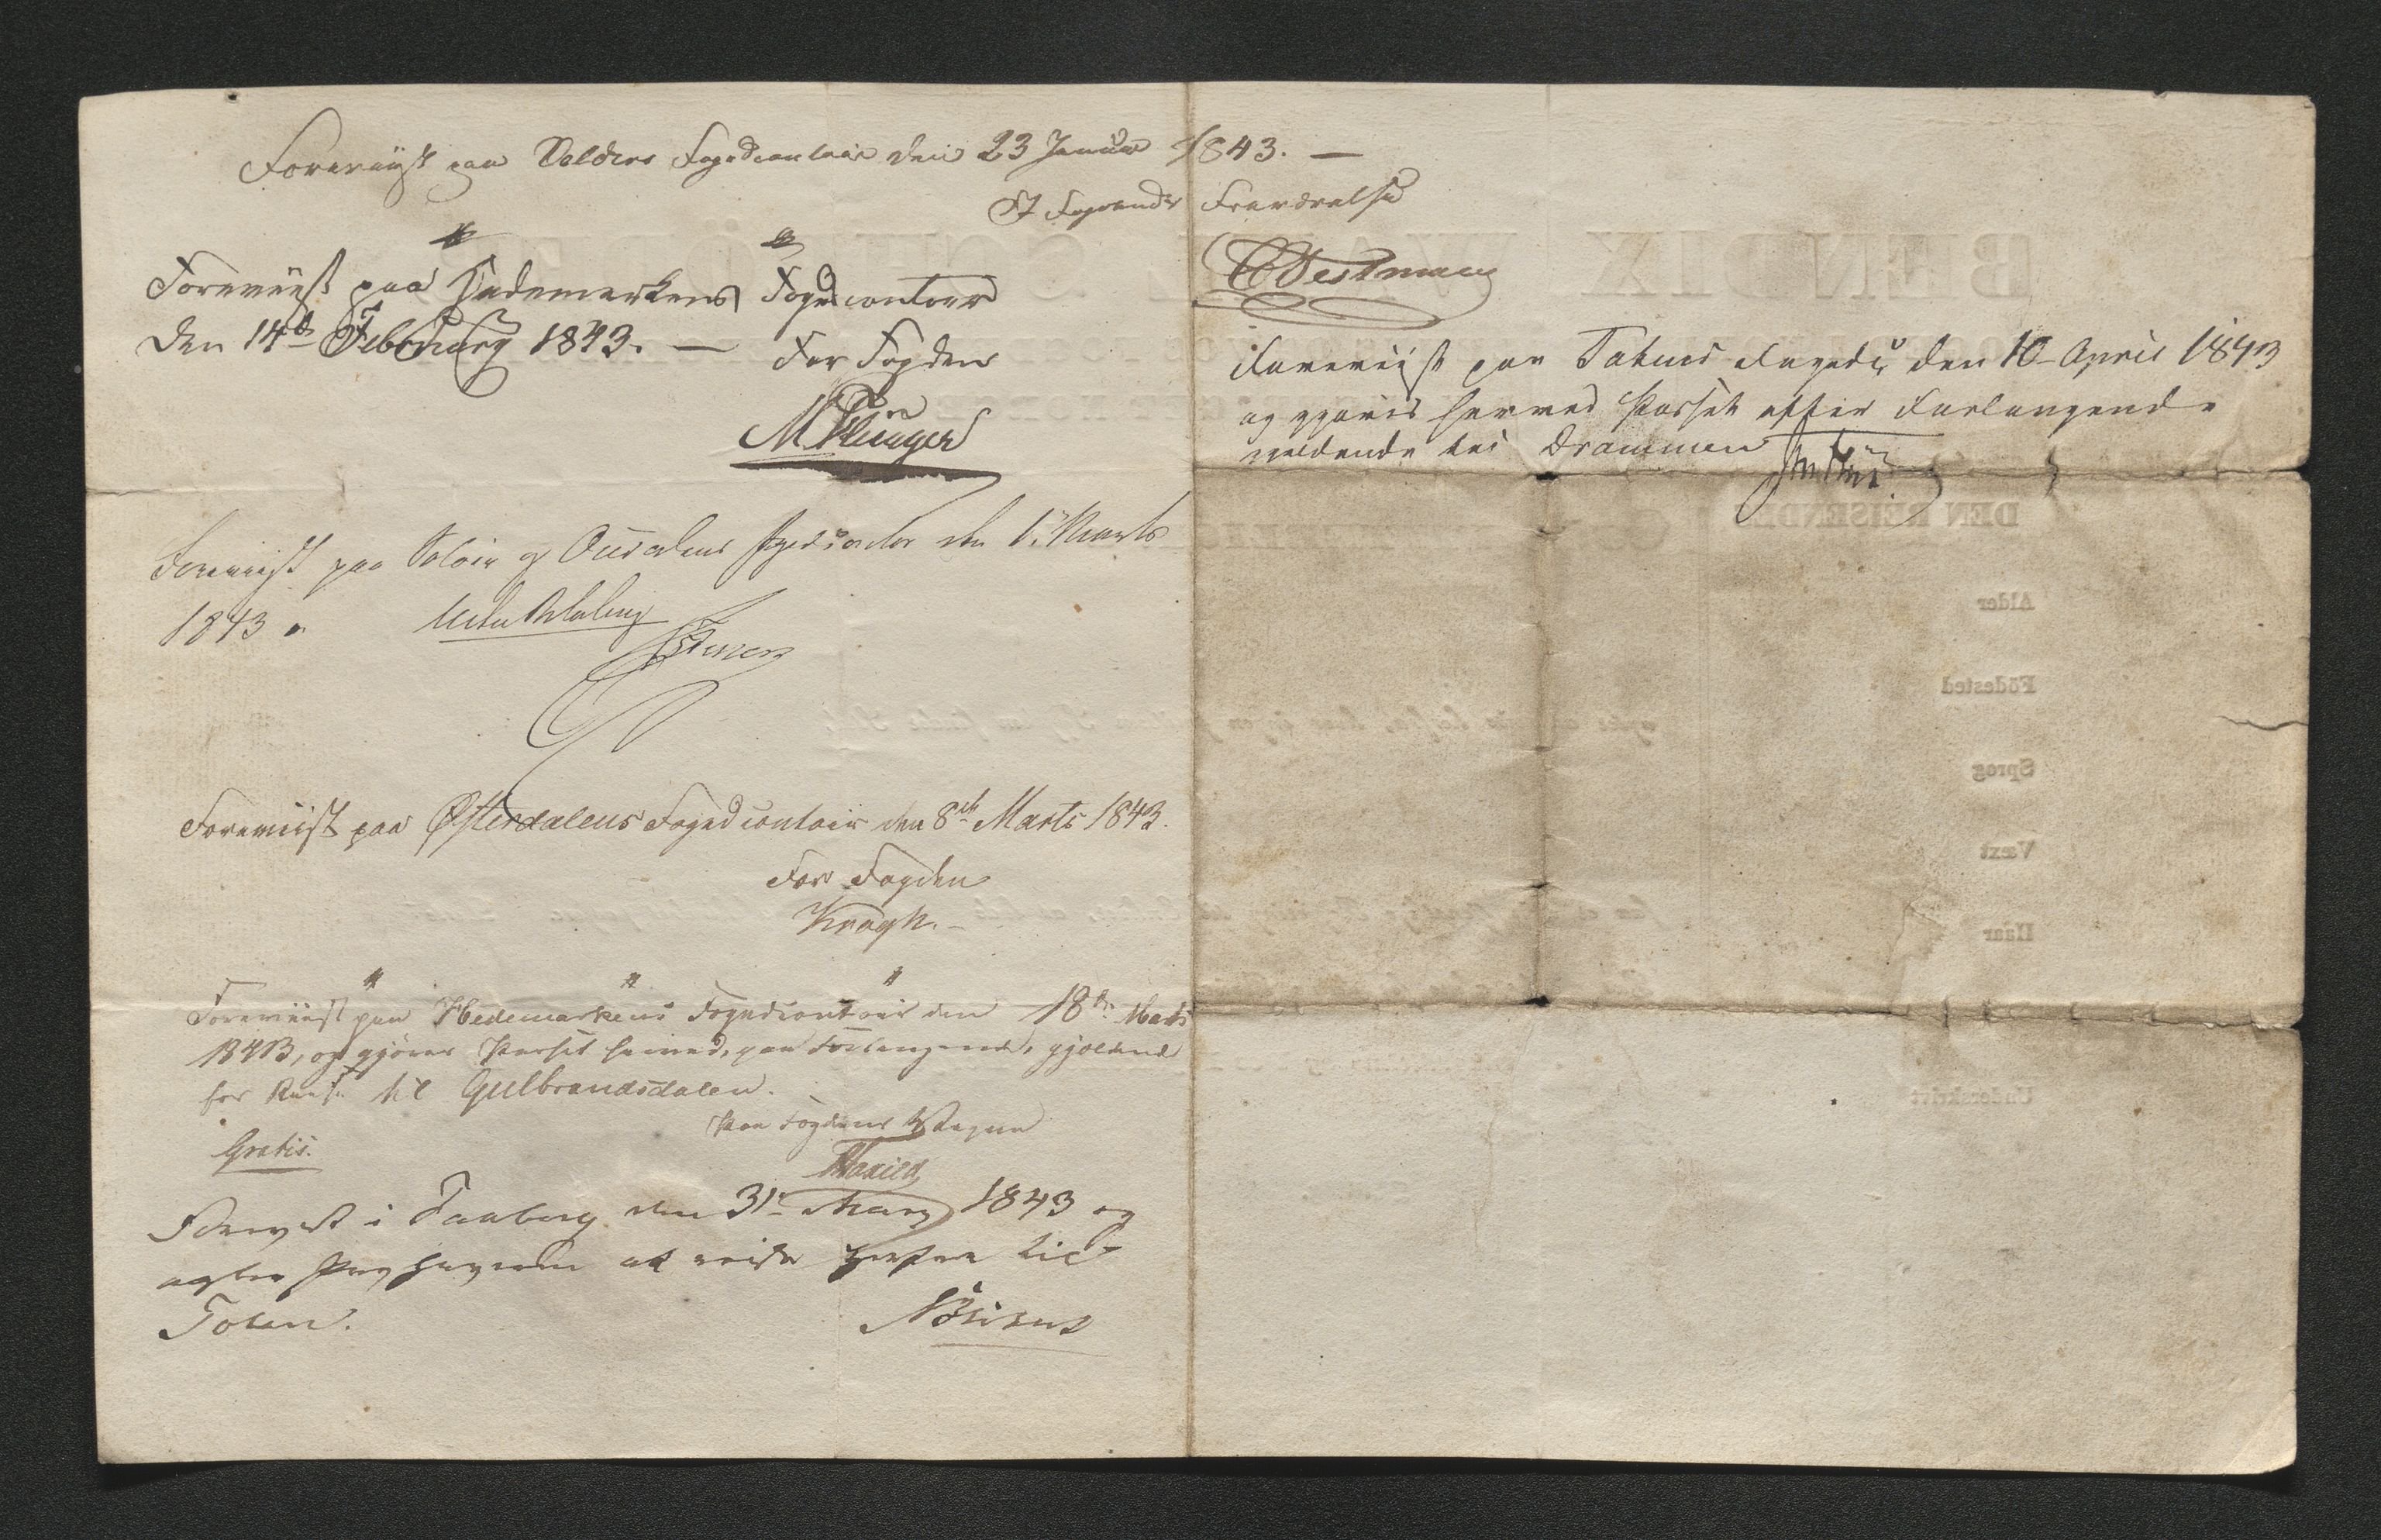 Foreviist paa Valders Fogedcontoir den 23 Januar 1843. —
I Fogdens Fraværelse
CWestmann
Foreviist paa Hedemarkens Fogedcontoir
den 14de Februarij 1843. — For Fogden
M Plünger
Foreviist paa Soløer og Oudalens Fogedcontor den 1. Marts
1843. Uden Betaling
Foreviist paa Østerdalens Fogedcontoir den 8de Marts 1843.
For Fogden
Kragh.
Foreviist paa Hedemarkens Fogedcontoir den 18de Marts
1843, og gjøres Passet herved, paa Forlangende, gjældende
for Reise til Gulbrandsdalen.
Paa Fogdens Vegne
Gratis.
Forevist i Faaberg den 31 Marz 1843 og
agter Pas haveren at reise herfra til
Toten.
Foreviist paa Totens Fogedi, den 10 April 1843
og gjøres herved Passet efter Forlangende
gjeldende til Drammen
BENDIX
DEN REISENDES
Alder
Födested
Sprog
Væxt
Haar
Underskrivt